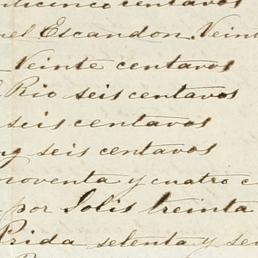 nticinco centavos
uel Escandon. Veint
Veinte centavos
Rio seis centavos
seis centavos
seis centavos
noventa y cuatro c
por Solis treinta
Prida setenta y se